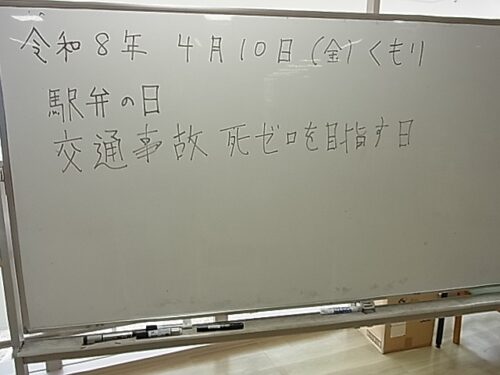 令和8年 4月10日(金)くもり
駅弁の日
交通事故死ゼロを目指す日